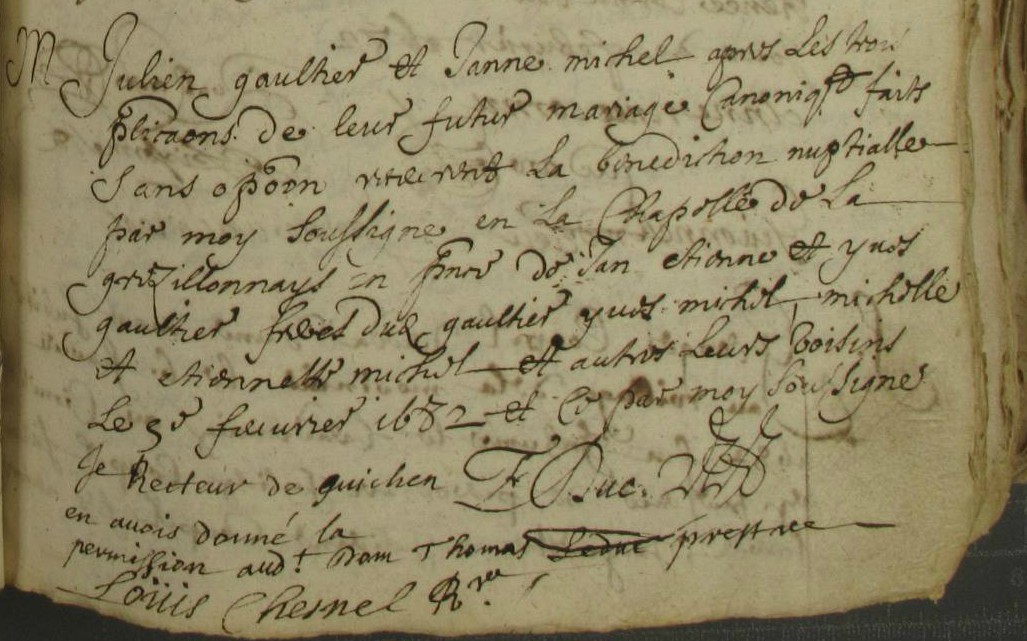 M Julien gaultier et Janne michel apres les trois
plicaons de leur futur mariage canoniqt faits
sans opoon receurent la benediction nuptialle
par moy soussigne en la chapelle de la
grezillonnays en pnce de Jan etienne et yues
gaultier freres dud gaultier yues michel, michelle
et etiennette michel et autres leurs voisins
Le 3e feuurier 1682 et ce par moy soussigne
Je Recteur de guichen T Duc.
en auois donné la
permission aud.t Dom Thomas Leduc prestre
Loüis Chesnel Rr.